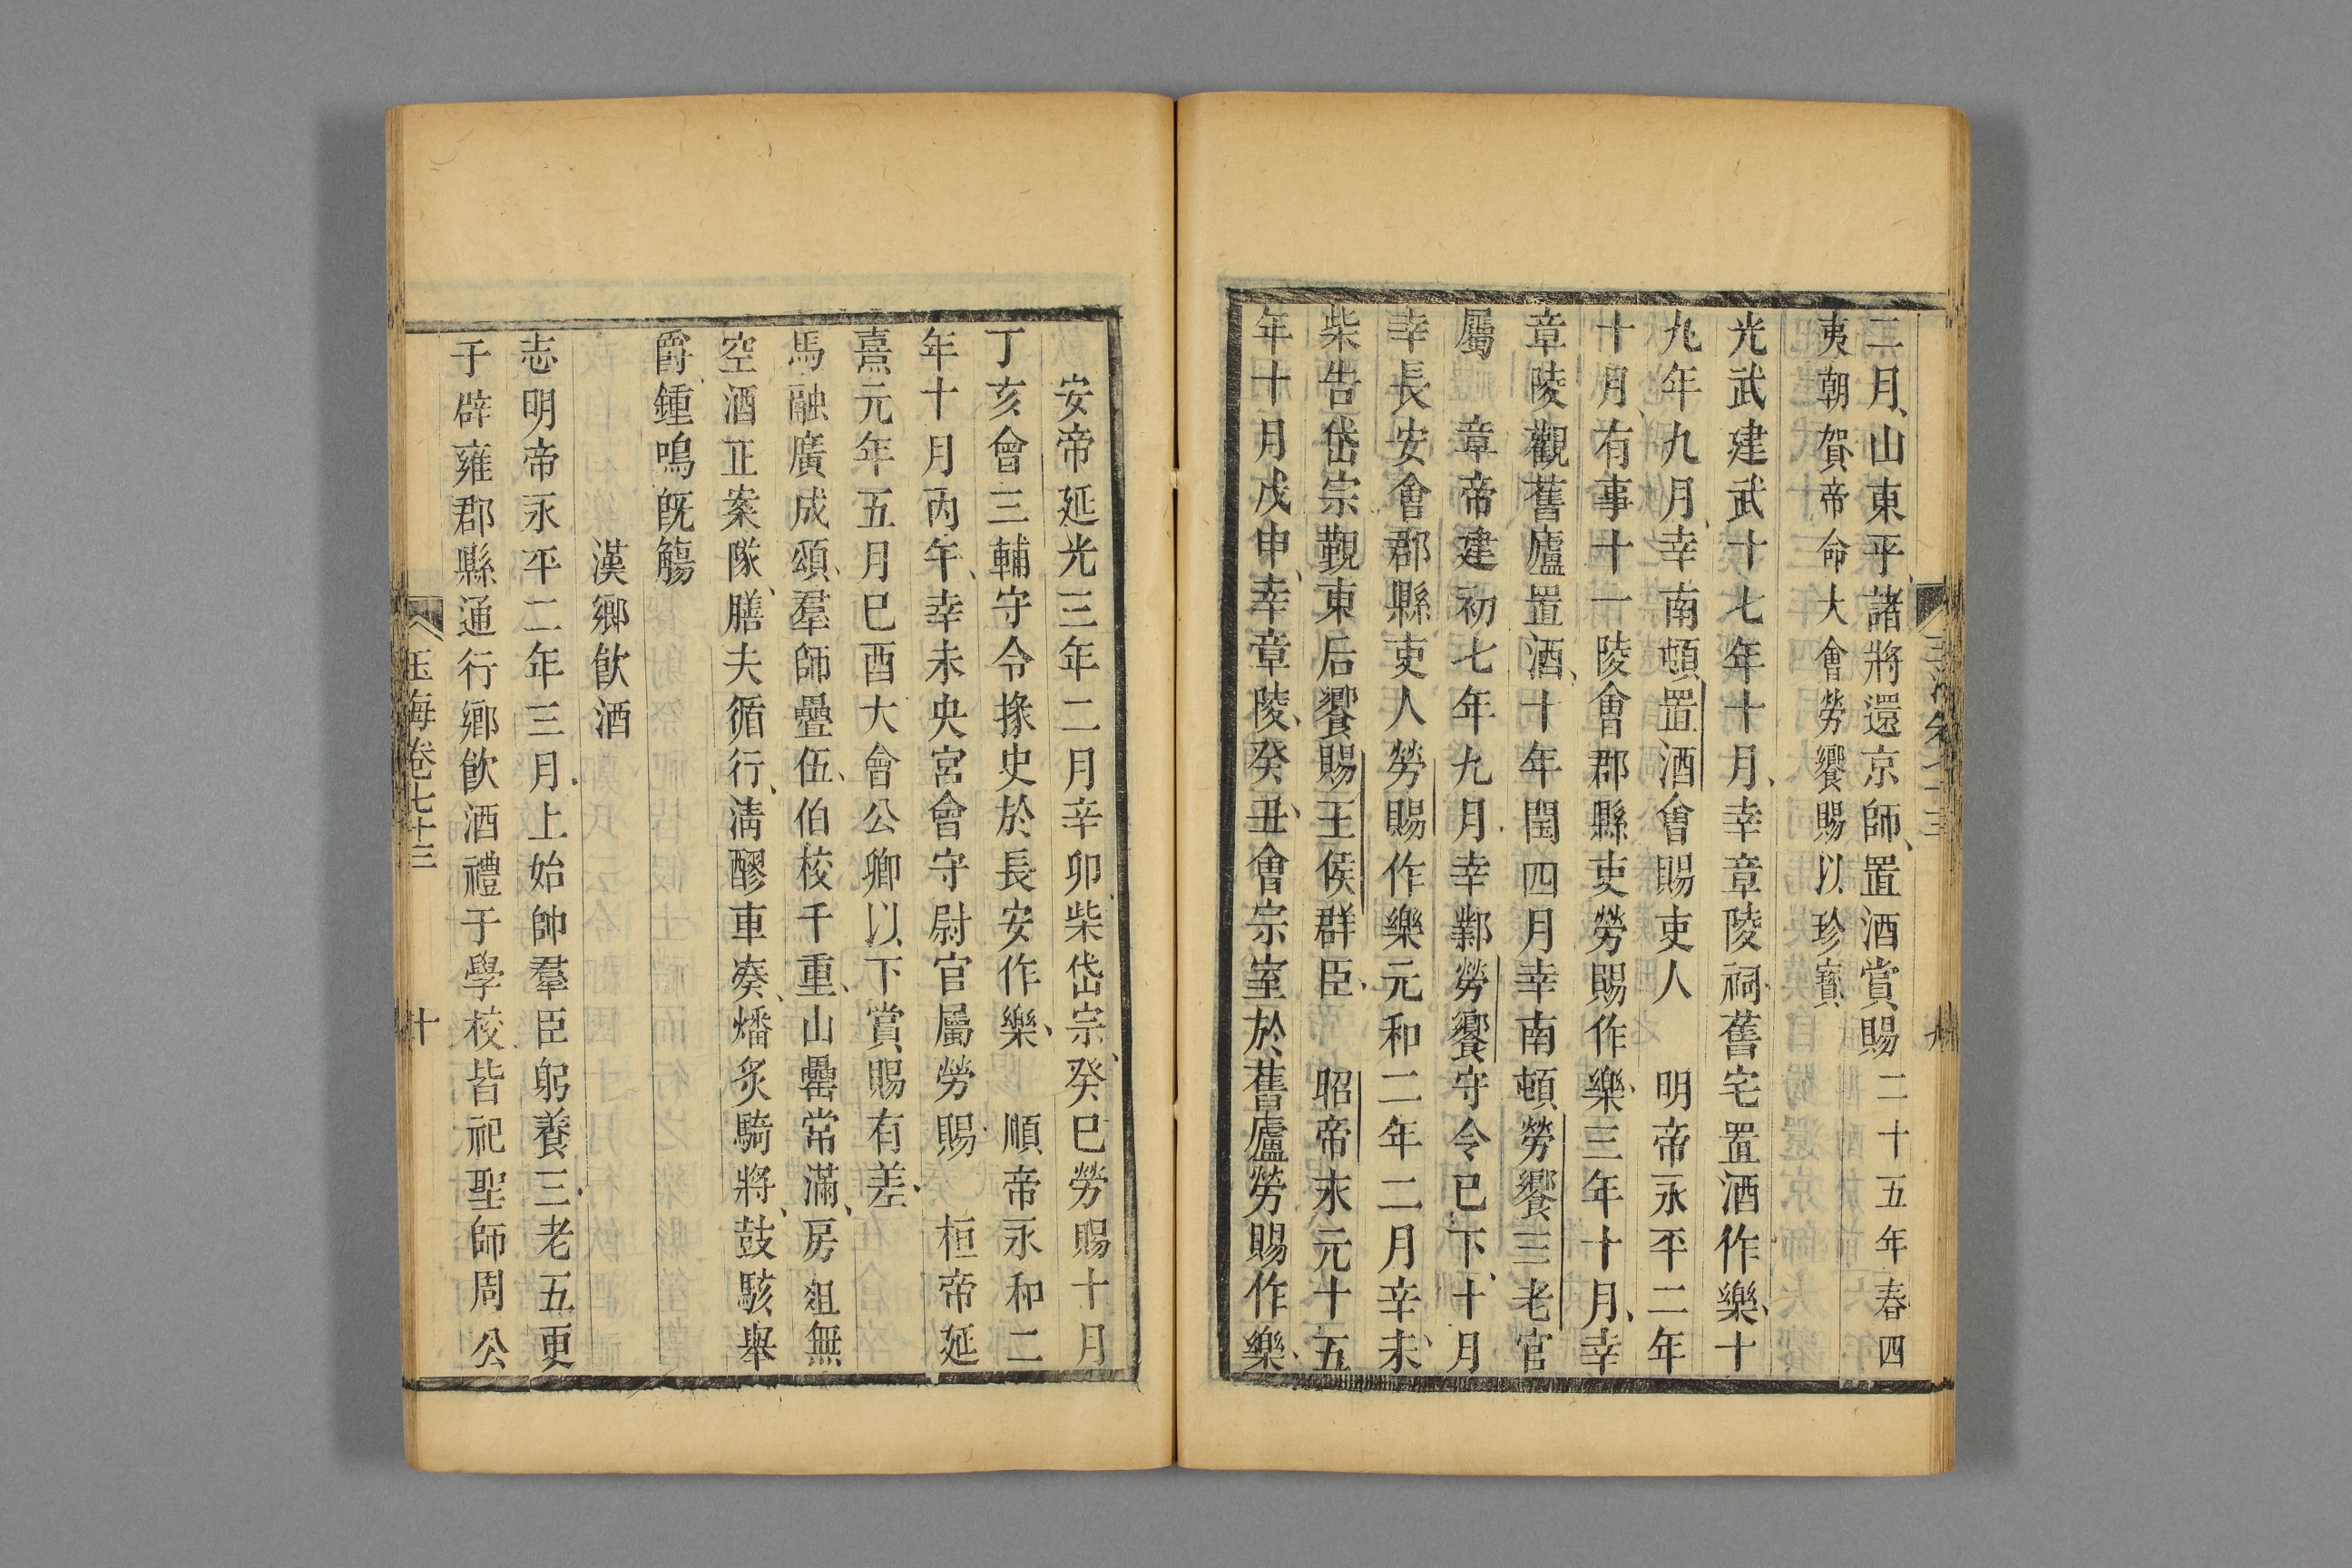 二月山東平諸將還京師置酒賞賜 二十五年春四
夷朝賀帝命大會勞饗賜以珍寶
光武建武十七年十月幸章陵祠舊宅置酒作樂十
九年九月幸南頓置酒會賜吏人 明帝永平二年
十月有事十一陵會郡縣吏勞賜作樂三年十月幸
章陵觀舊廬置酒十年閏四月幸南頓勞饗三老官
屬 章帝建初七年九月幸鄴勞饗守令已下十月
幸長安會郡縣吏人勞賜作樂元和二年二月辛未
柴告岱宗觀東后饗賜王侯群臣 昭帝末元十五
年十月戊申幸章陵癸丑會宗室於舊廬勞賜作樂
安帝延光三年二月辛卯柴岱宗癸巳勞賜十月
丁亥會三輔守令掾史於長安作樂 順帝永和二
年十月丙午幸未央宮會守尉官屬勞賜 桓帝延
熹元年五月巳酉大會公卿以下賞賜有差
馬融廣成頌羣師疊伍伯校千重山罍常滿房俎無
空酒正案隊膳夫循行清醪車湊燔炙騎將鼓駭舉
爵鍾鳴旣觴
漢鄉飮酒
志明帝永平二年三月上始帥羣臣躬養三老五更
于辟雍郡縣通行鄉飮酒禮于學校皆祀聖師周公
玉海卷七十三 十